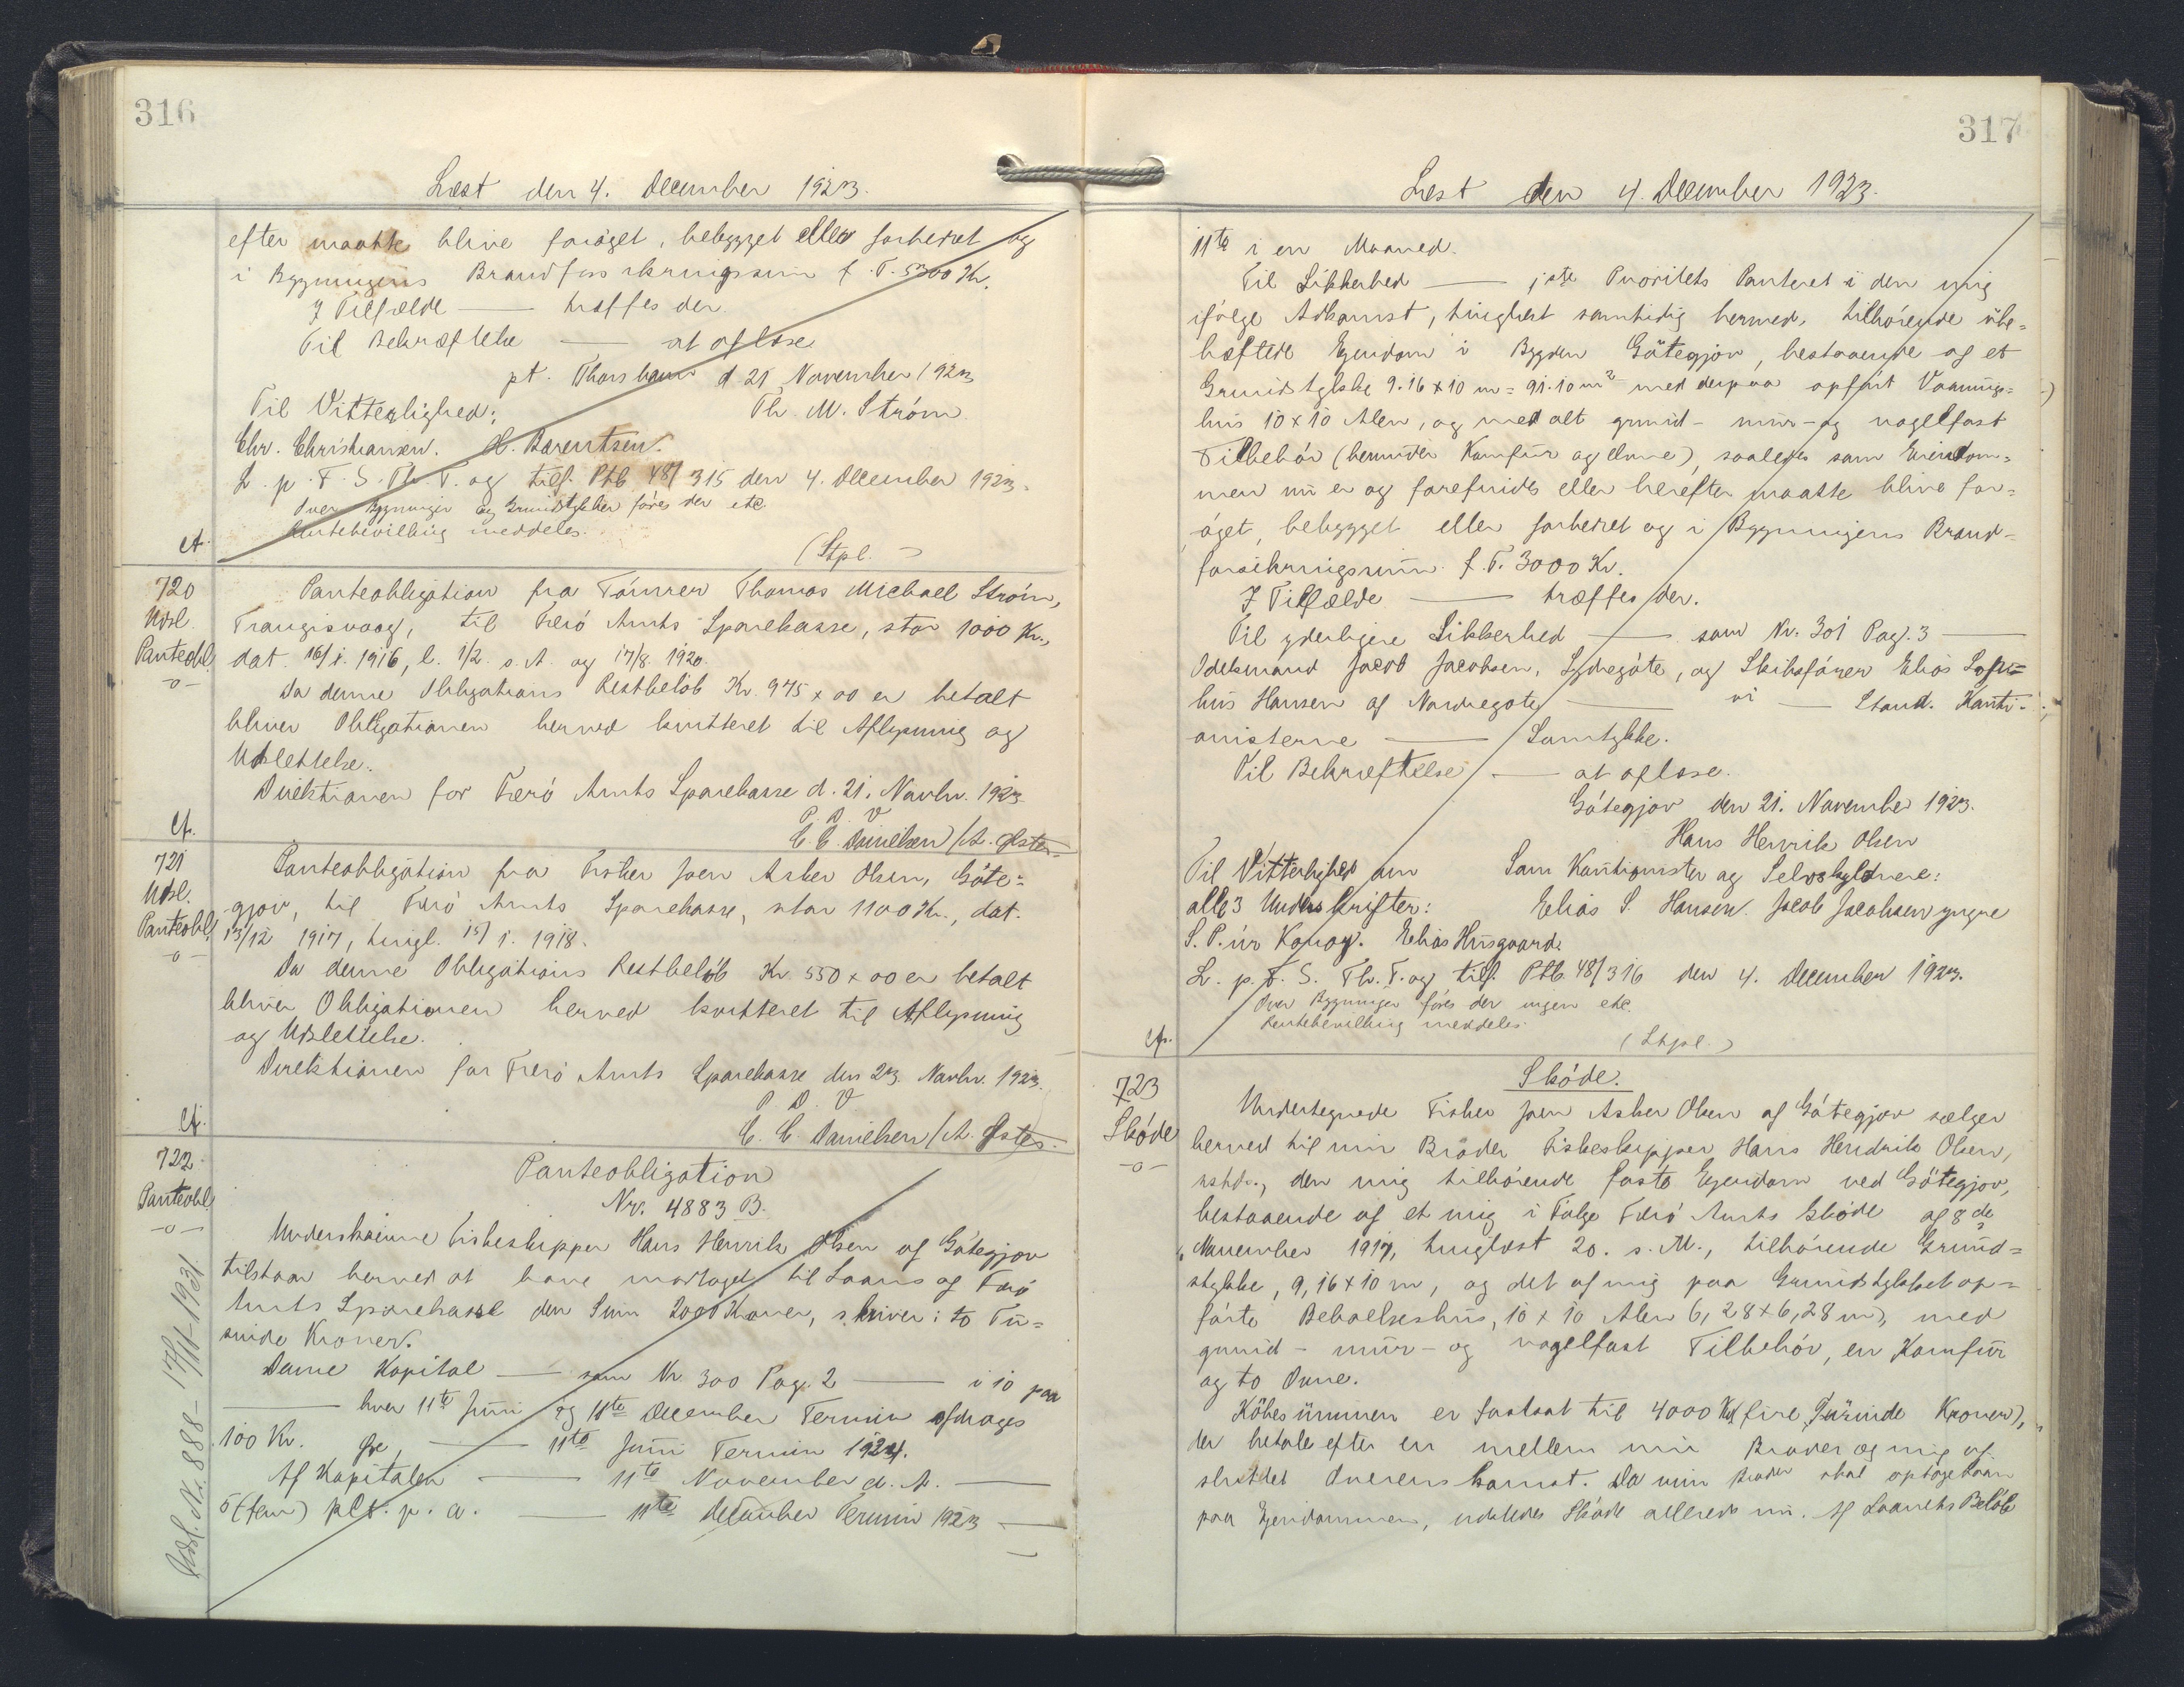 316
Læst den 4. December 1923.
efter maatte blive forøget, bebygget eller forbedret og
i Bygningens Brandforsikringssum f. T. 5300 Kr.
I Tilfælde — træffes der.
Til Bekræftelse — at aflæse
pt. Thorshavn d 21 November 1923
Til Vitterlighed: Th. M. Strøm.
Chr. Christiansen. H. Barentsen.
L. p. F. S. Th. T. og tilf. Ptb 48/315 den 4. December 1923.
Over Bygninger og Grundstykker føres der etc.
Rentebevilling meddeles.
Cf.
(Stpl. )
720
Udsl.
Panteobl.
-o-
Panteobligation fra Tømrer Thomas Michael Strøm,
Trangisvaag, til Færø Amts Sparekasse, stor 1000 Kr.,
dat. 16/1. 1916, l. 1/2. s. A. og 17/8 1920.
Da denne Obligations Restbeløb Kr. 975 x 00 er betalt
bliver Obligationen herved kvitteret til Aflysning og
Udslettelse.
Direktionen for Færø Amts Sparekasse d. 21. Novbr. 1923.
P. D. V
C. C. Danielsen / A. Øster.
Cf.
721
Udsl.
Panteobl.
-o-
Panteobligation fra Fisker Joen Asker Olsen, Gøte=
gjov, til Færø Amts Sparekasse, stor 1100 Kr., dat.
13/12 1917, tingl. 15/1. 1918.
Da denne Obligations Restbeløb Kr 550 x 00 er betalt
bliver Obligationen herved kvitteret til Aflysning
og Udslettelse.
Direktionen for Færø Amts Sparekasse den 23. Novbr. 1923.
P. D. V
C. C. Danielsen / A. Øster.
Cf.
722
Panteobl.
-o-
Panteobligation
Nr. 4883 B.
Underskrevne Fiskeskipper Hans Henrik Olsen af Gøtegjov
tilstaar herved at have modtaget til Laans af Færø
Amts Sparekasse den Sum 2000 Kroner, skriver: to Tu=
sinde Kroner.
Denne Kapital — som Nr 300 Pag. 2 — i 10 paa
— hver 11te Juni og 11te December Termin afdrages
100 Kr. — 11te Juni Termin 1924.
Af Kapitalen — 11te November d. A. —
5 (fem) pCt. p. a. — 11te December Termin 1923 —
Udsl. Nr. 888 - 17/11-1931
317
Læst den 4. December 1923.
11te i en Maaned.
Til Sikkerhed — 1ste Prioritets Panteret i den mig
ifølge Adkomst, tinglæst samtidig hermed, tilhørende ube=
hæftede Ejendom i Bygden Gøtegjov, bestaaende af et
Grundstykke 9.16 x 10 m = 91.10 m² med derpaa opført Vaanings=
hus 10 x 10 Alen, og med alt grund- mur- og nagelfast
Tilbehør (herunder Komfur og Ovne), saaledes som Ejendom=
men nu er og forefindes eller herefter maatte blive for=
øget, bebygget eller forbedret og i Bygningens Brand-
forsikringssum f. T. 3000 Kr.
I Tilfælde — træffes der.
Til yderligere Sikkerhed — som Nr. 301 Pag. 3 —
Odelsmand Jacob Jacobsen, Sydregøte, og Skibsfører Elias Sofus=
hus Hansen af Nordregøte — vi — Stand. Kauti=
onisterne — Samtykke.
Til Bekræftelse — at aflæse.
Gøtegjov den 21. November 1923.
Hans Henrik Olsen
Til Vitterlighed om Som Kautionister og Selvskyldnere:
alle 3 Underskrifter: Elias S. Hansen. Jacob Jacobsen yngre
S. P. úr Konoy. Elias Husgaard.
L. p. F. S. Th. T. og tilf. Ptb. 48/316 den 4. December 1923.
Over Bygninger føres der ingen etc.
Rentebevilling meddeles.
Cf.
(Stpl.)
723
Skøde
-o-
Skøde.
Undertegnede Fisker Joen Asker Olsen af Gøtegjov sælger
herved til min Broder Fiskeskipper Hans Hendrik Olsen,
asstds., den mig tilhørende faste Ejendom ved Gøtegjov,
bestaaende af et mig i Følge Færø Amts Skøde af 8de
November 1917, tinglæst 20. s. M., tilhørende Grund=
stykke, 9,16 x 10 m, og det af mig paa Grundstykket op=
førte Beboelseshus, 10 x 10 Alen 6,28 x 6,28 m), med
grund- mur- og nagelfast Tilbehør, en Komfur
og to Ovne.
Købesummen er fastsat til 4000 Kr (fire Tusinde Kroner),
der betales efter en mellem min Broder og mig af
sluttet Overenskomst. Da min Broder skal optage Laan
paa Ejendommen, udstedes Skøde allerede nu. Af Laanets Beløb